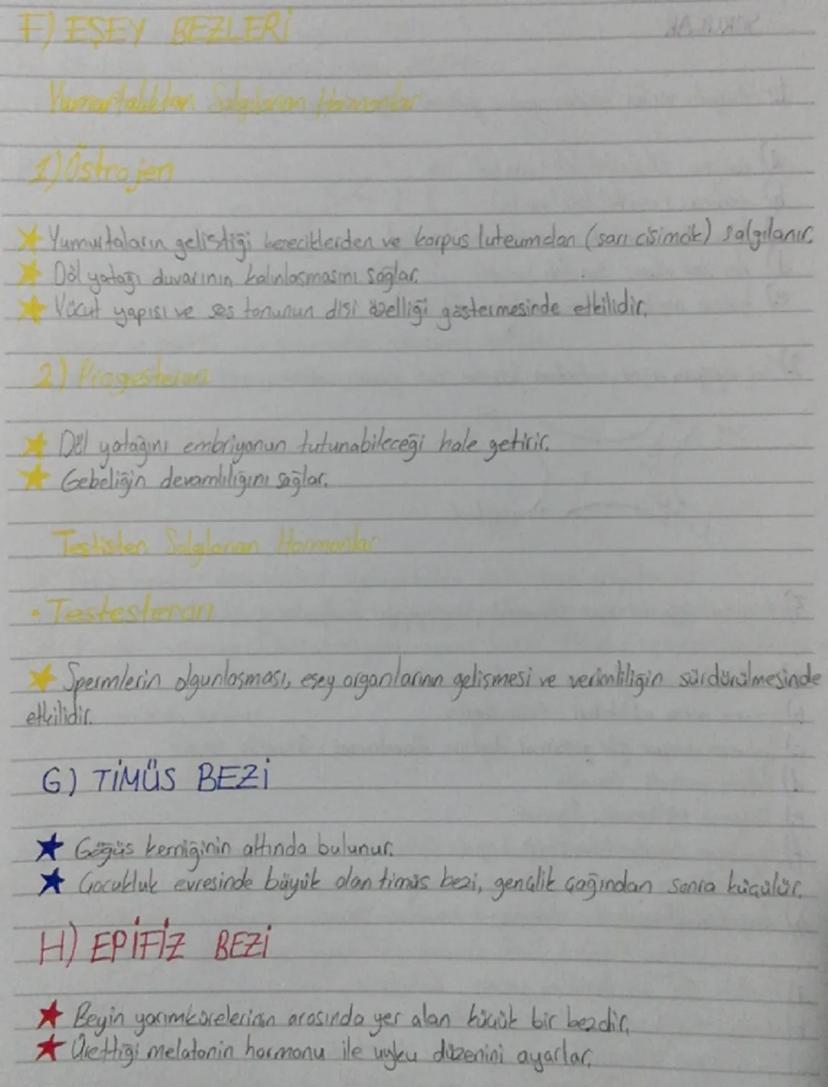 F) EŞEY BEZLERİ
Yumurtalıktan Salgılanan Hormonlar
1) Östrojen
Yumurtaların geliştiği keseciklerden ve korpus luteumdan (sarı cisimcik) salgılanır.
Döl yatağı duvarının kalınlaşmasını sağlar.
Vücut yapısı ve ses tonunun dişi özelliği göstermesinde etkilidir.
2) Progesteron
Döl yatağını embriyonun tutunabileceği hale getirir.
Gebeliğin devamlılığını sağlar.
Testisten Salgılanan Hormonlar
• Testesteron
Spermlerin olgunlaşması, eşey organlarının gelişmesi ve verimliliğin sürdürülmesinde
etkilidir.
G) TİMÜS BEZİ
Göğüs kemiğinin altında bulunur.
Çocukluk evresinde büyük olan timüs bezi, gençlik çağından sonra küçülür.
H) EPİFİZ BEZİ
Beyin yarımkürelerinin arasında yer alan küçük bir bezdir.
Ürettiği melatonin hormonu ile uyku düzenini ayarlar.